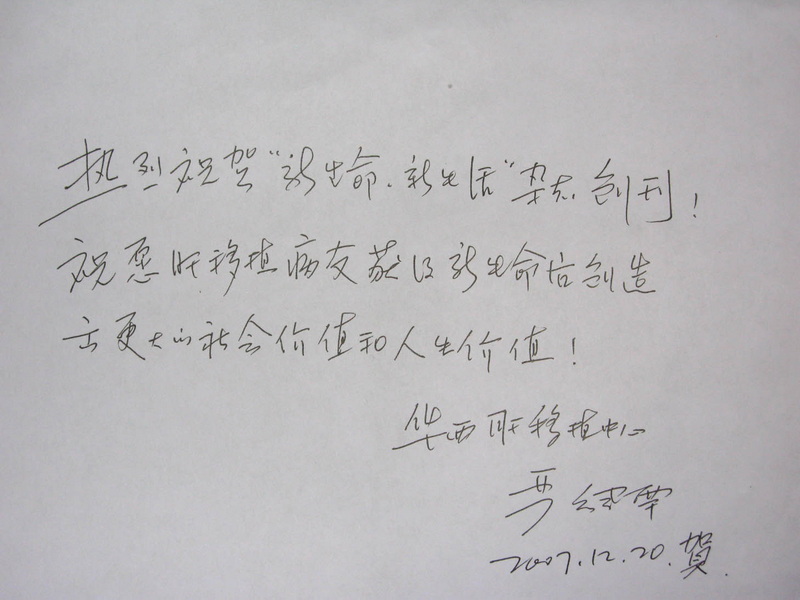 热烈祝贺“新生命、新生活”杂志创刊！
祝愿肝移植病友获得新生命后创造
出更大的社会价值和人生价值！
华西肝移植中心
严律南
2007.12.20.賀